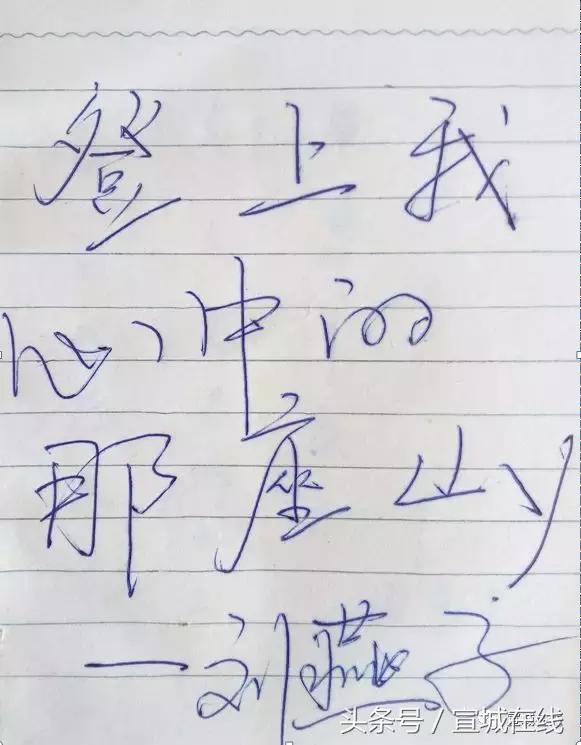 登上我
心中的
那座山
—刘燕子
头条号／宣城在线